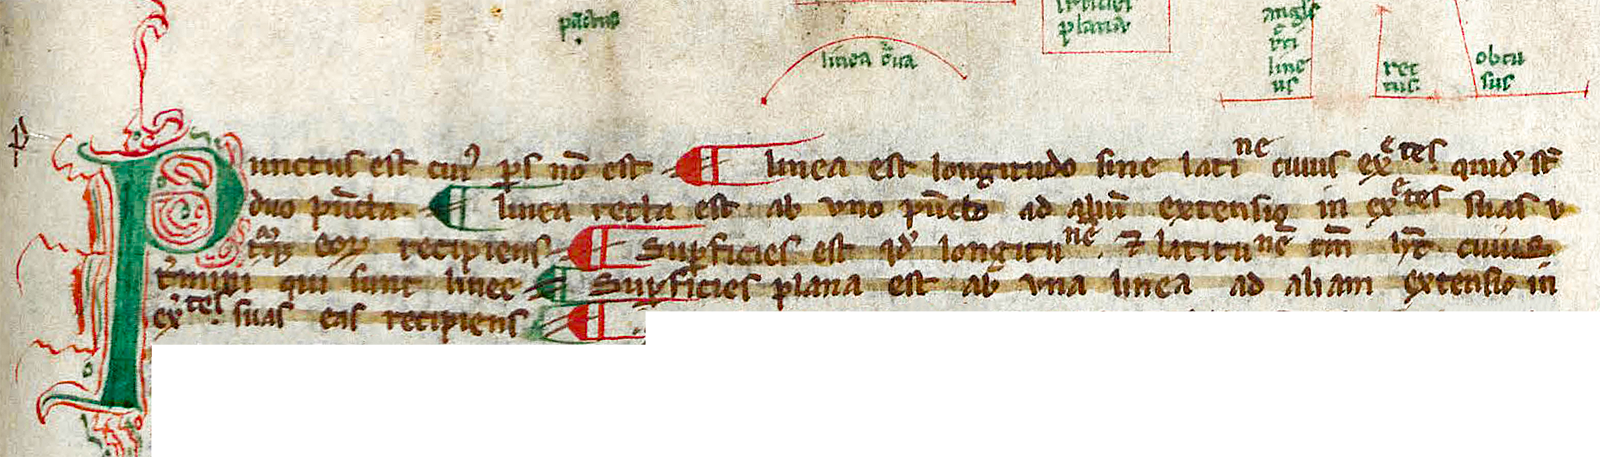 punctus
linea c̄ua
plana
angls
rci
line
us
rec
tus
obtu
sus
p
Punctus est cui᷒ ps nō est linea est longitudo sine latiⁿᵉ cuius ex̄tes quid̄ st̄
duo pūcta. linea recta est ab uno pūcto ad aliū extensio in ex̄tes suas v
eoꝝ recipiens Supficies est qd̄ longituⁿᵉ ⁊ latituⁿᵉ tm̄ ht̄ cuius
t̄mini qui sunt linee Supficies plana est ab una linea ad aliam extensio in
ex̄tes suas eas recipiens